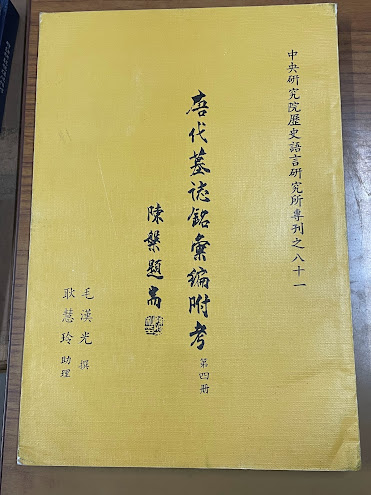 中央研究院歷史語言研究所專刊之八十一
唐代墓誌銘彙編附考
第四册
陳槃題耑
毛漢光 撰
耿慧玲 助理